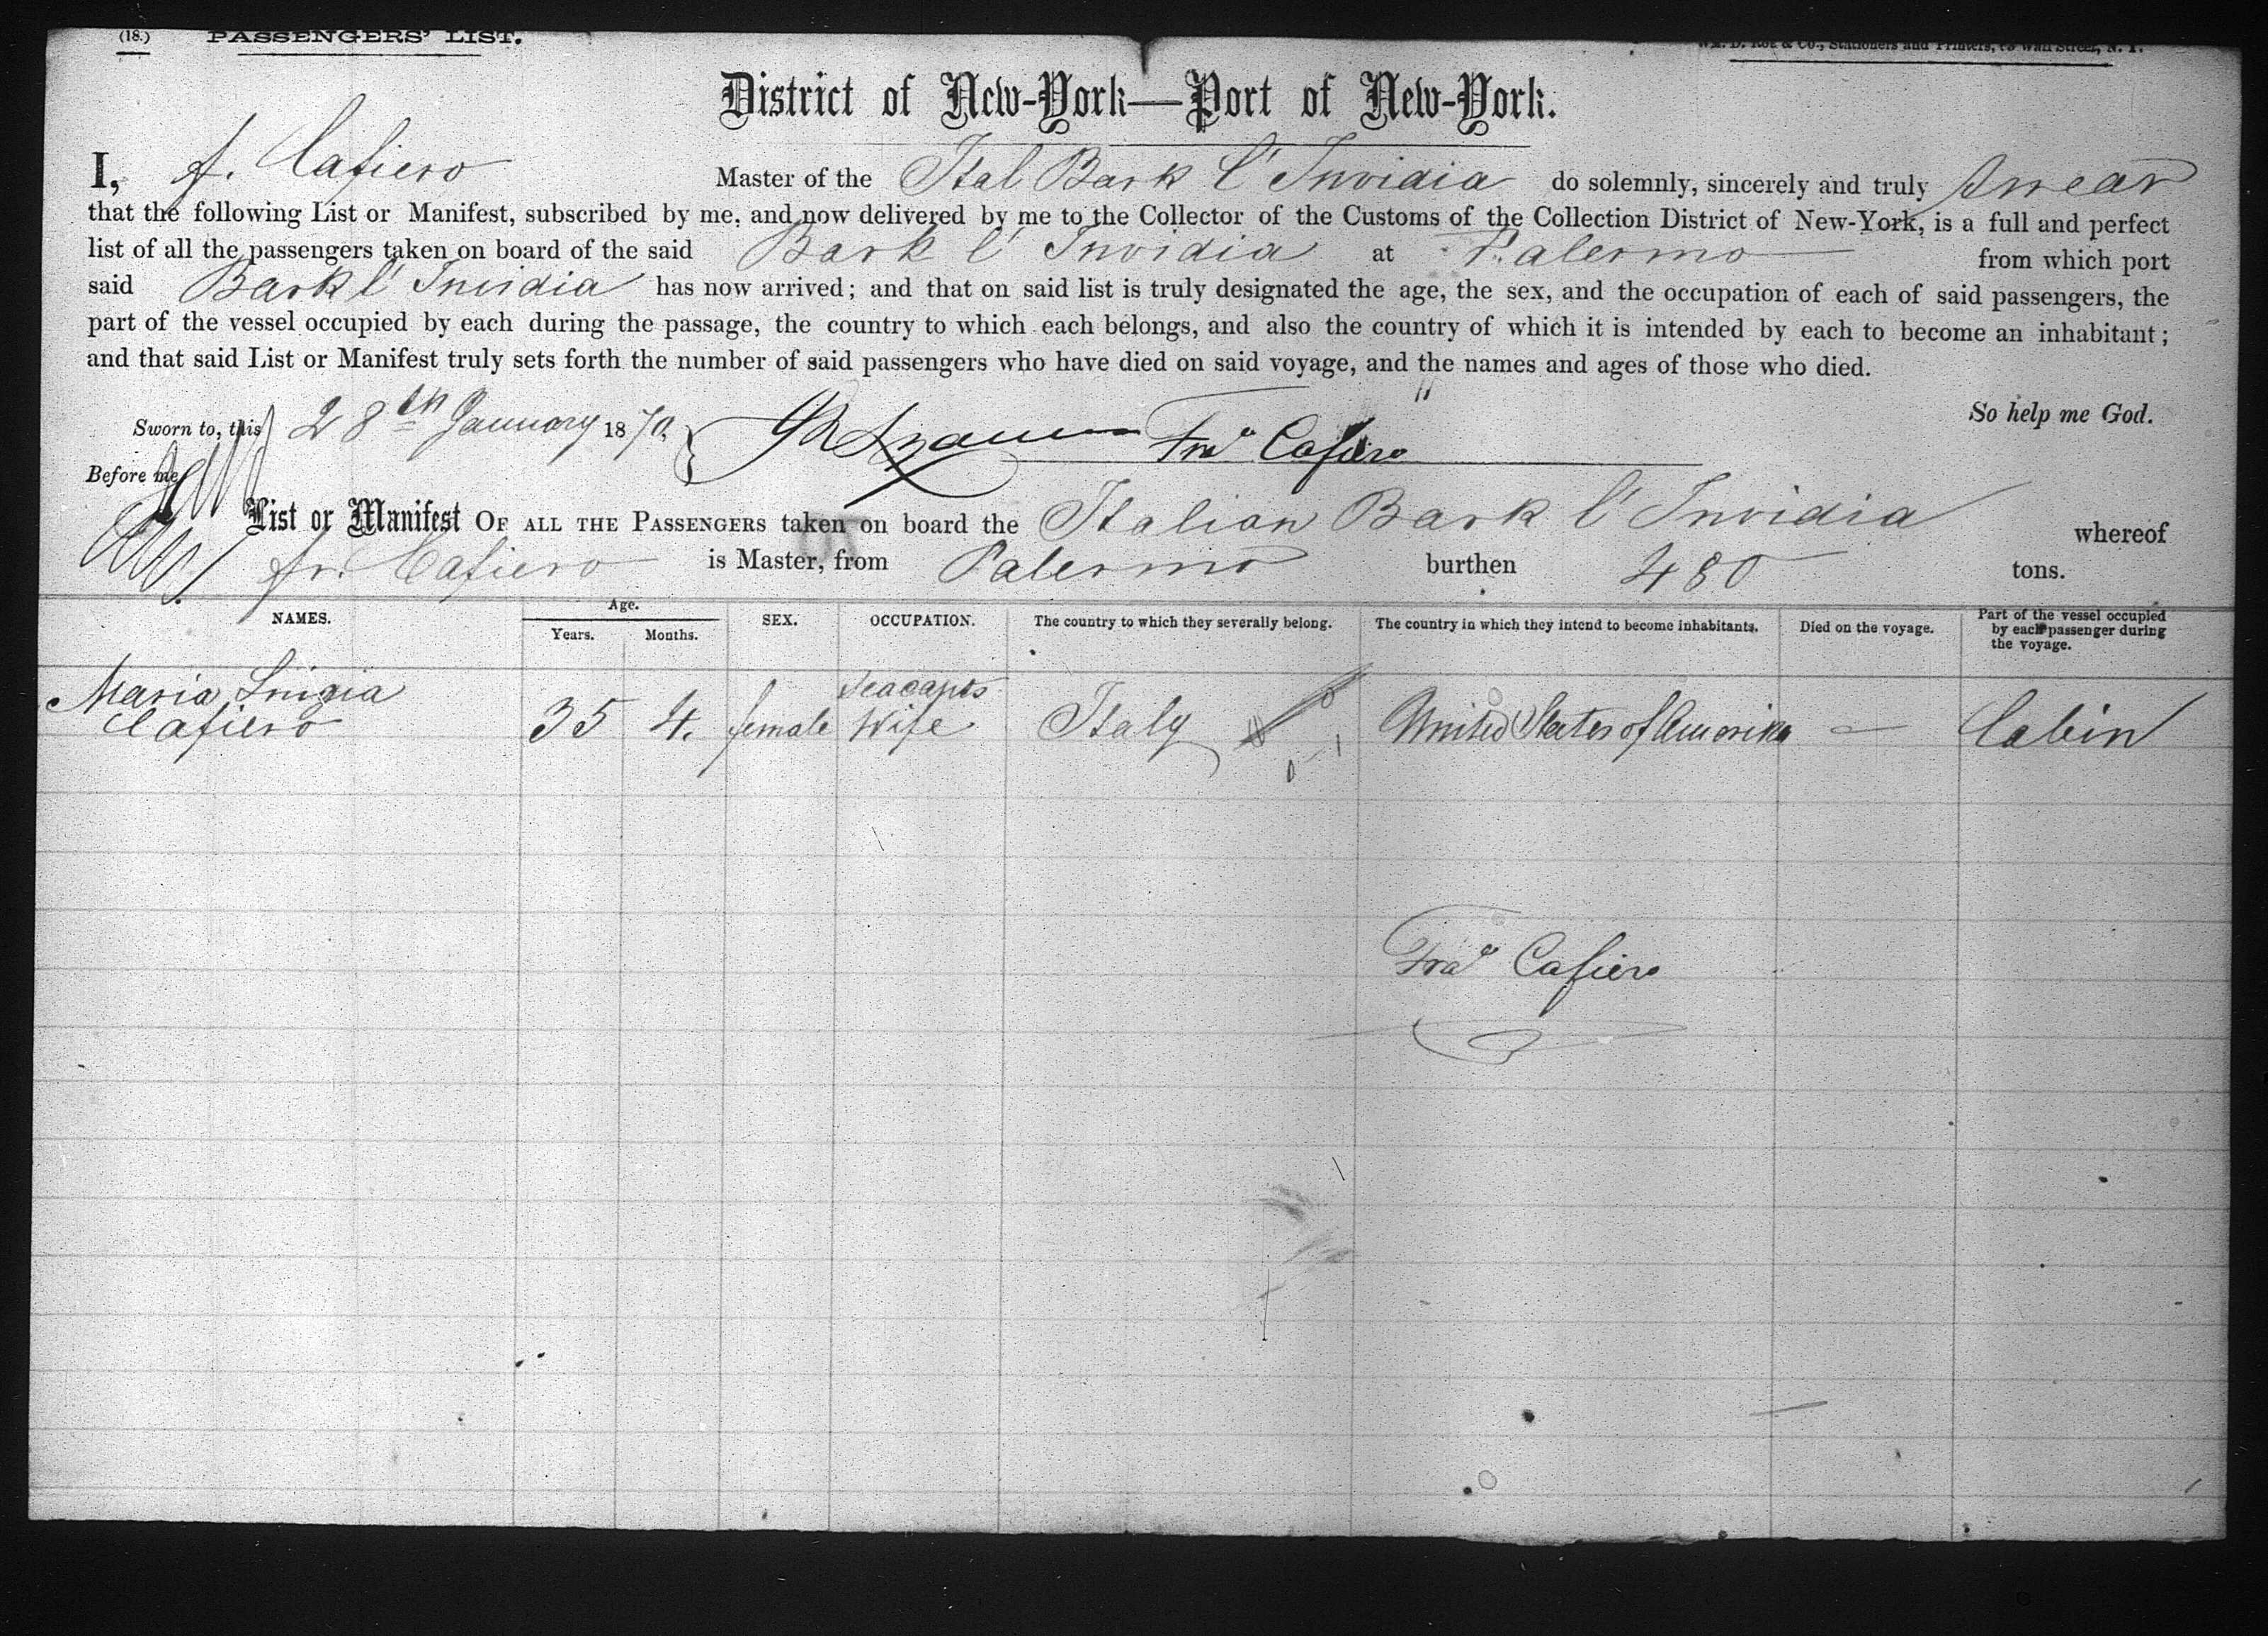 (18.) PASSENGERS' LIST. Wm. D. Roe & Co., Stationers and Printers, Wall Street, N. Y.
District of New-York—Port of New-York.
I, f. Cafiero Master of the Ital Bark l'Invidia do solemnly, sincerely and truly swear
that the following List or Manifest, subscribed by me, and now delivered by me to the Collector of the Customs of the Collection District of New-York, is a full and perfect
list of all the passengers taken on board of the said Bark l'Invidia at Palermo from which port
said Bark l'Invidia has now arrived; and that on said list is truly designated the age, the sex, and the occupation of each of said passengers, the
part of the vessel occupied by each during the passage, the country to which each belongs, and also the country of which it is intended by each to become an inhabitant;
and that said List or Manifest truly sets forth the number of said passengers who have died on said voyage, and the names and ages of those who died.
So help me God.
Sworn to, this 28th January 1870, Frao Cafiero
Before me
List or Manifest OF ALL THE PASSENGERS taken on board the Italian Bark l'Invidia whereof
fr. Cafiero is Master, from Palermo burthen 480 tons.
NAMES. Age. Years. Months. SEX. OCCUPATION. The country to which they severally belong. The country in which they intend to become inhabitants. Died on the voyage. Part of the vessel occupied by each passenger during the voyage.
Maria Luigia Seacapts
Cafiero 35 4. female Wife Italy United States of Amerika — Cabin
Frao Cafiero